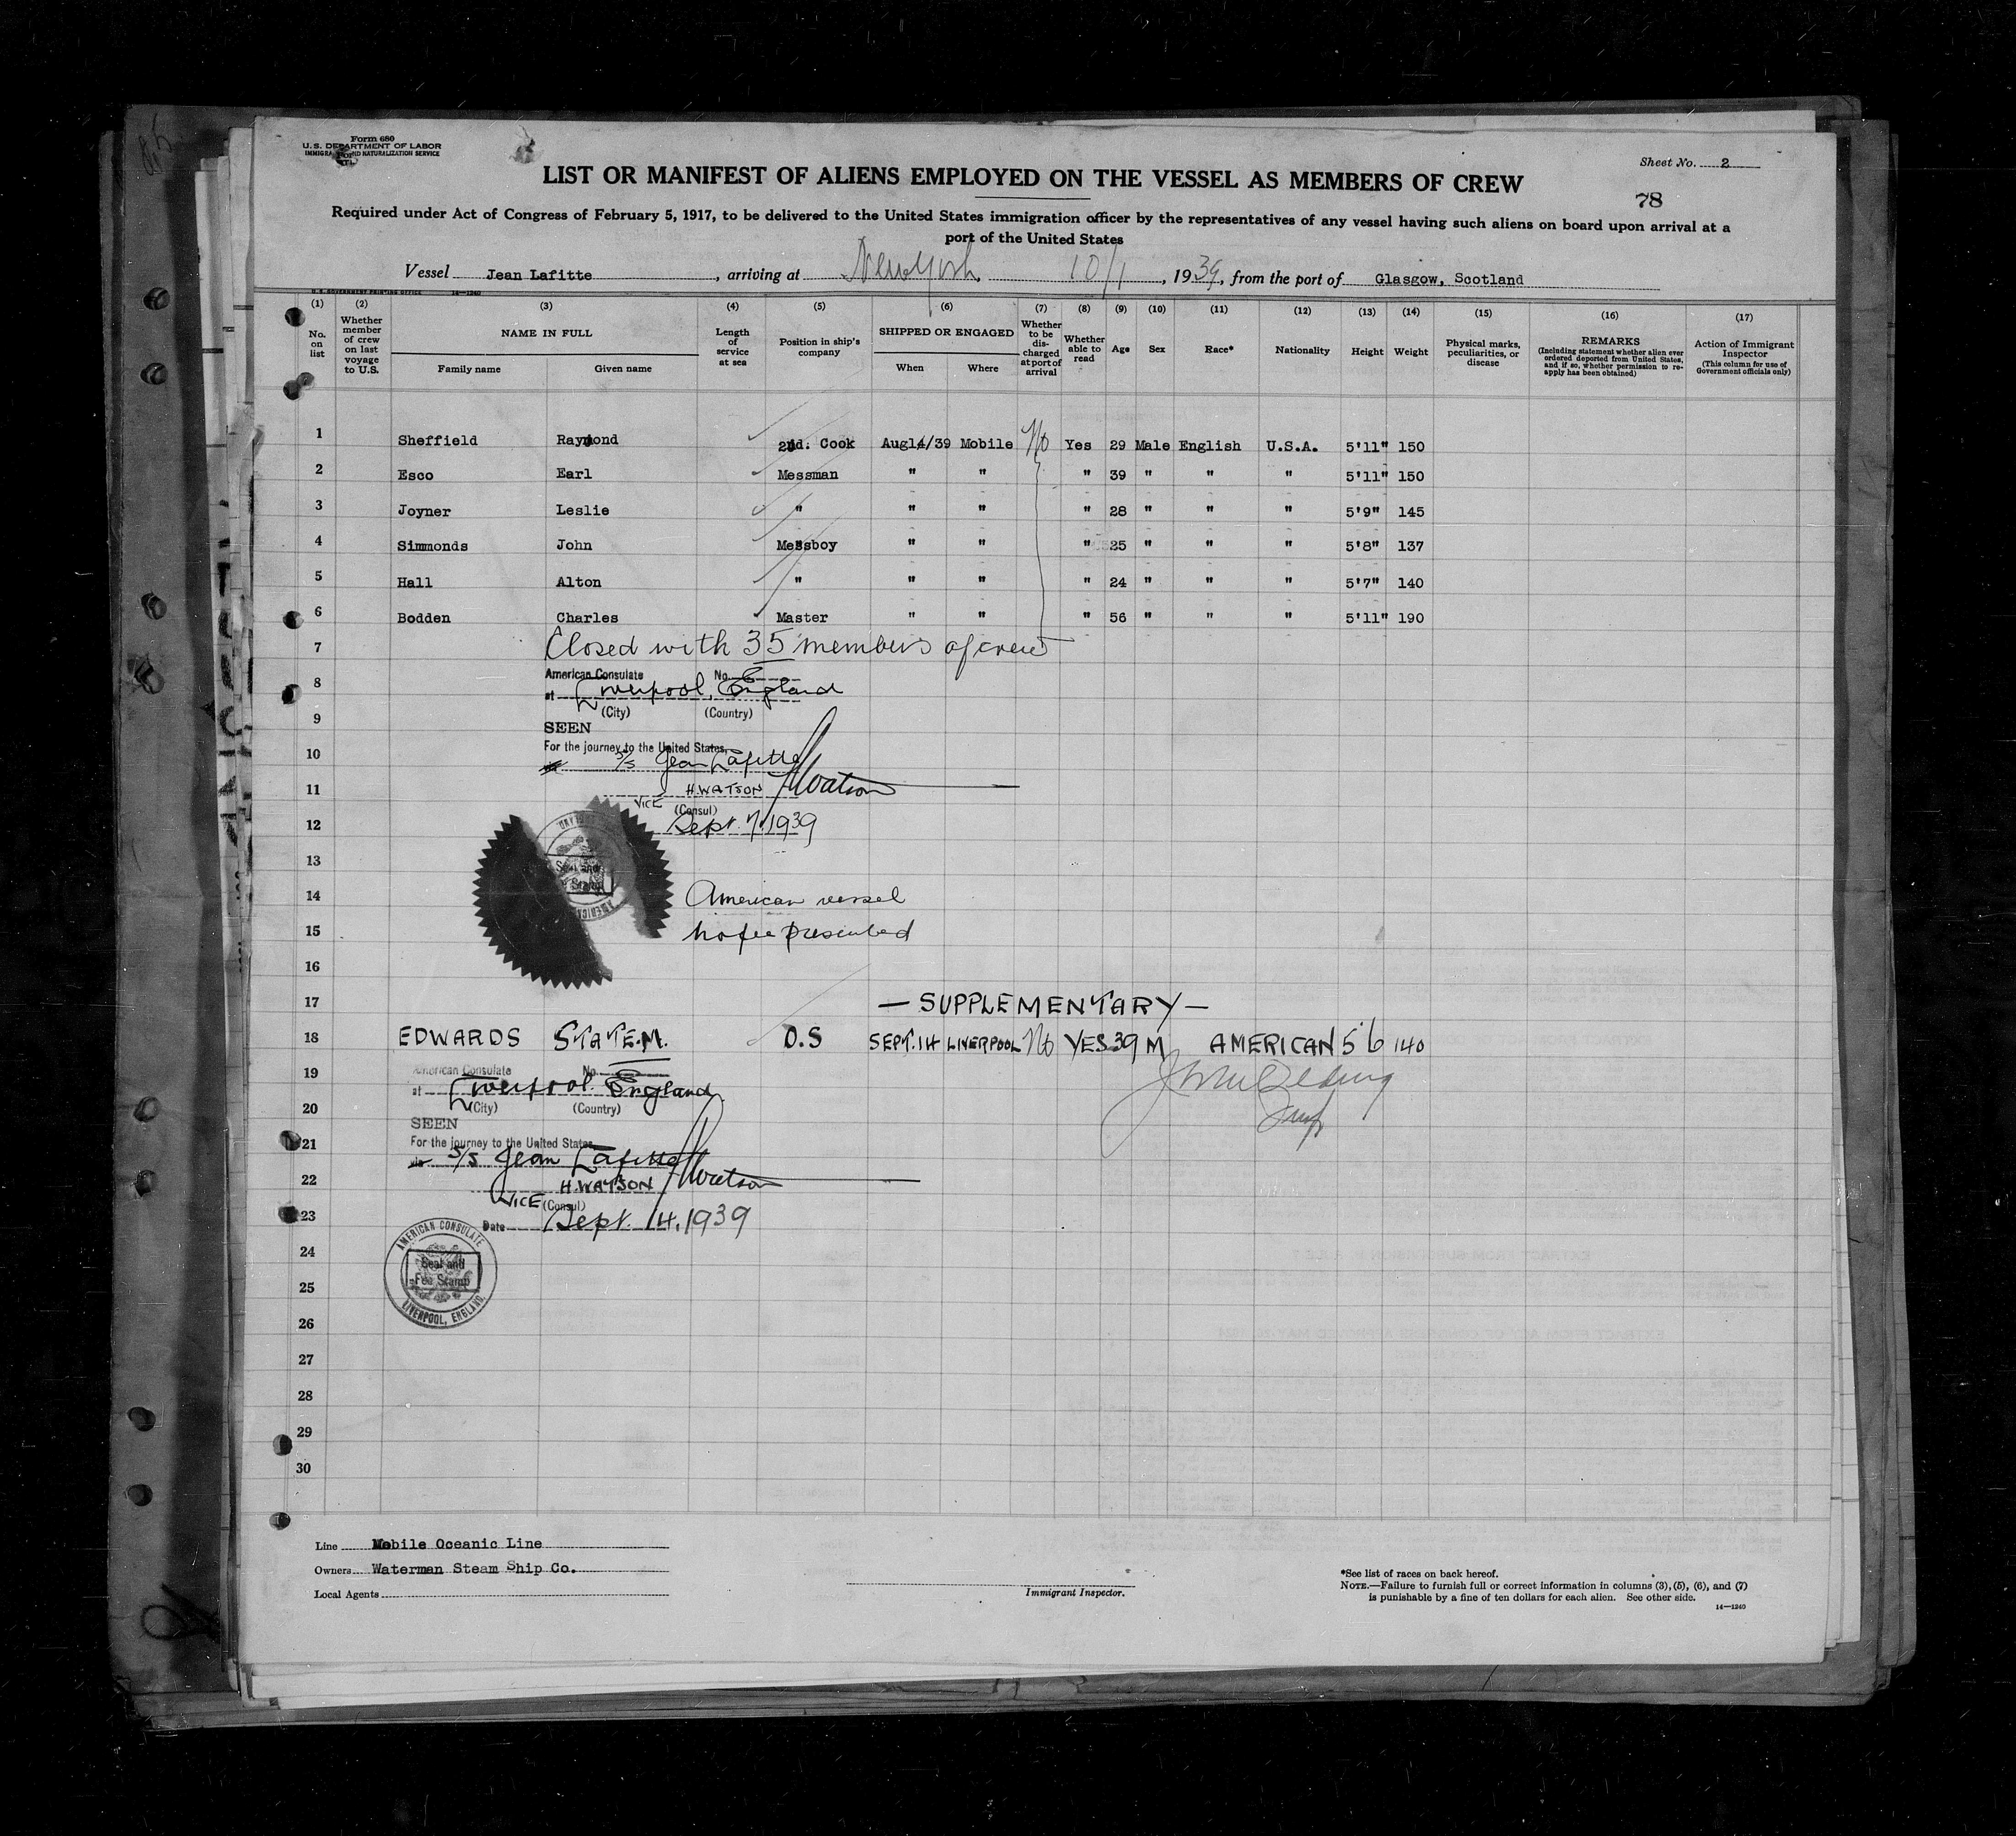 Form 680
U.S. DEPARTMENT OF LABOR
IMMIGRA AND NATURALIZATION SERVICE
Sheet No. 2
LIST OR MANIFEST OF ALIENS EMPLOYED ON THE VESSEL AS MEMBERS OF CREW
78
Required under Act of Congress of February 5, 1917, to be delivered to the United States immigration officer by the representatives of any vessel having such aliens on board upon arrival at a
port of the United States
Vessel Jean Lafitte, arriving at New York, 10/1, 1939, from the port of Glasgow, Scotland
U. S. GOVERNMENT PRINTING OFFICE 14—1240
(1) (2) (3) (4) (5) (6) (7) (8) (9) (10) (11) (12) (13) (14) (15) (16) (17)
No. on list
Whether member of crew on last voyage to U.S.
NAME IN FULL
Family name
Given name
Length of service at sea
Position in ship's company
SHIPPED OR ENGAGED
When
Where
Whether to be discharged at port of arrival
Whether able to read
Age
Sex
Race*
Nationality
Height
Weight
Physical marks, peculiarities, or disease
REMARKS
(Including statement whether alien ever ordered deported from United States, and if so, whether permission to reapply has been obtained)
Action of Immigrant Inspector
(This column for use of Government officials only)
1 Sheffield Raymond 2nd. Cook Aug14/39 Mobile No Yes 29 Male English U.S.A. 5'11" 150
2 Esco Earl Messman " " " 39 " " " 5'11" 150
3 Joyner Leslie " " " " 28 " " " 5'9" 145
4 Simmonds John Messboy " " " 25 " " " 5'8" 137
5 Hall Alton " " " " 24 " " " 5'7" 140
6 Bodden Charles Master " " " 56 " " " 5'11" 190
7 Closed with 35 members of crew
American Consulate No.
8 at Liverpool, England
(City) (Country)
9 SEEN
For the journey to the United States,
10 S/S Jean Lafitte
11 H. WATSON HWatson
VICE (Consul)
12 Sept. 7. 1939
13
Seal and
Stamp
14 American vessel
15 no fee presented
16
17 — SUPPLEMENTARY —
18 EDWARDS STATE.M. O.S SEPT. 14 LIVERPOOL No YES 39 M AMERICAN 5'6 140
19 American Consulate No.
at Liverpool. England
20 (City) (Country)
SEEN
21 For the journey to the United States,
via S/S Jean Lafitte
22 H. WATSON HWatson
VICE (Consul)
23 Date Sept. 14. 1939
24 AMERICAN CONSULATE
Seal and
25 Fee Stamp
LIVERPOOL, ENGLAND.
26
27
28
29
30
Line Mobile Oceanic Line
Owners Waterman Steam Ship Co.
Local Agents
Immigrant Inspector.
*See list of races on back hereof.
NOTE.—Failure to furnish full or correct information in columns (3), (5), (6), and (7)
is punishable by a fine of ten dollars for each alien. See other side.
14—1240